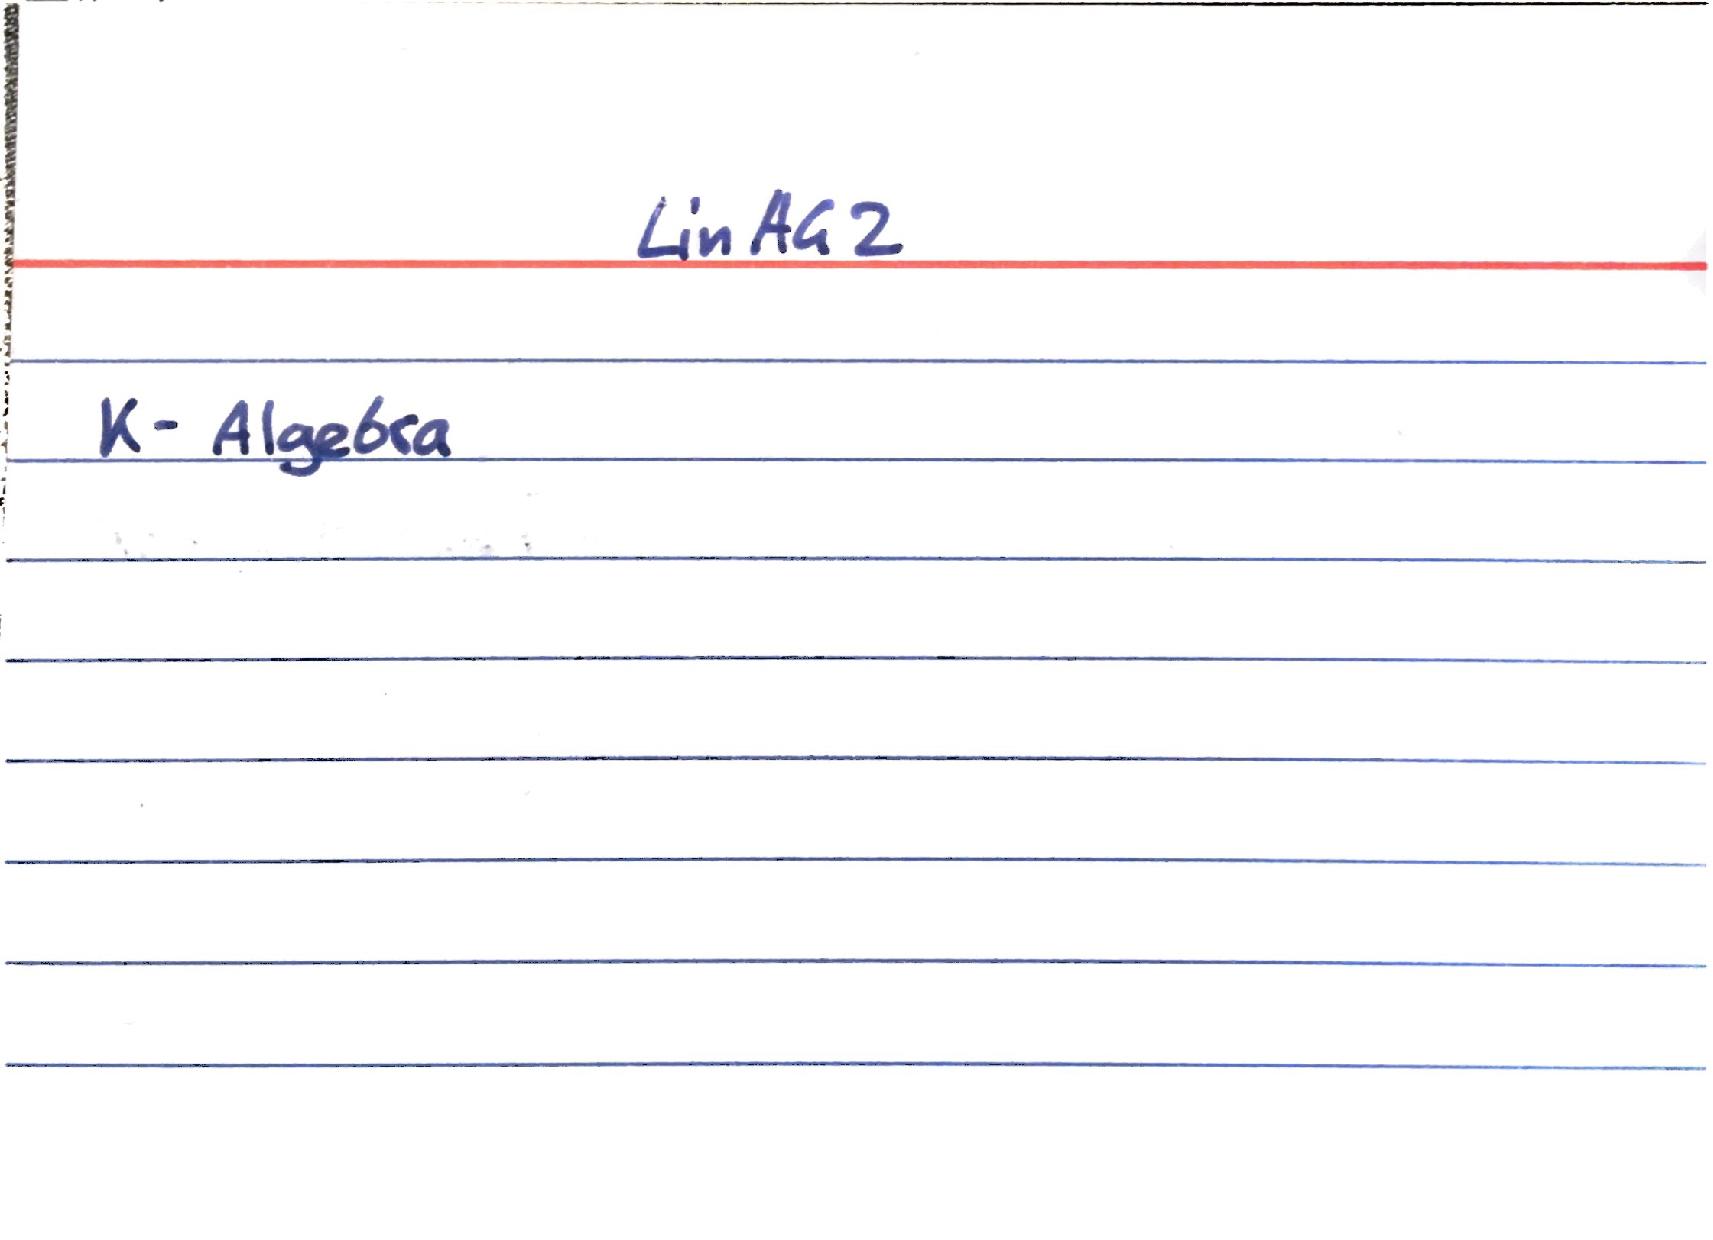 LinAG 2
K- Algebra